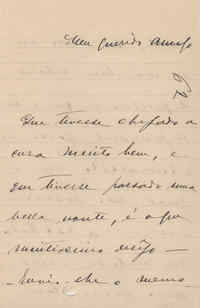 Meu querido amigo
62
Que tivesse chegado a
casa muito bem, e
que tivesse passado uma
bella noite, é o que
muitissimo desejo —
o mesmo